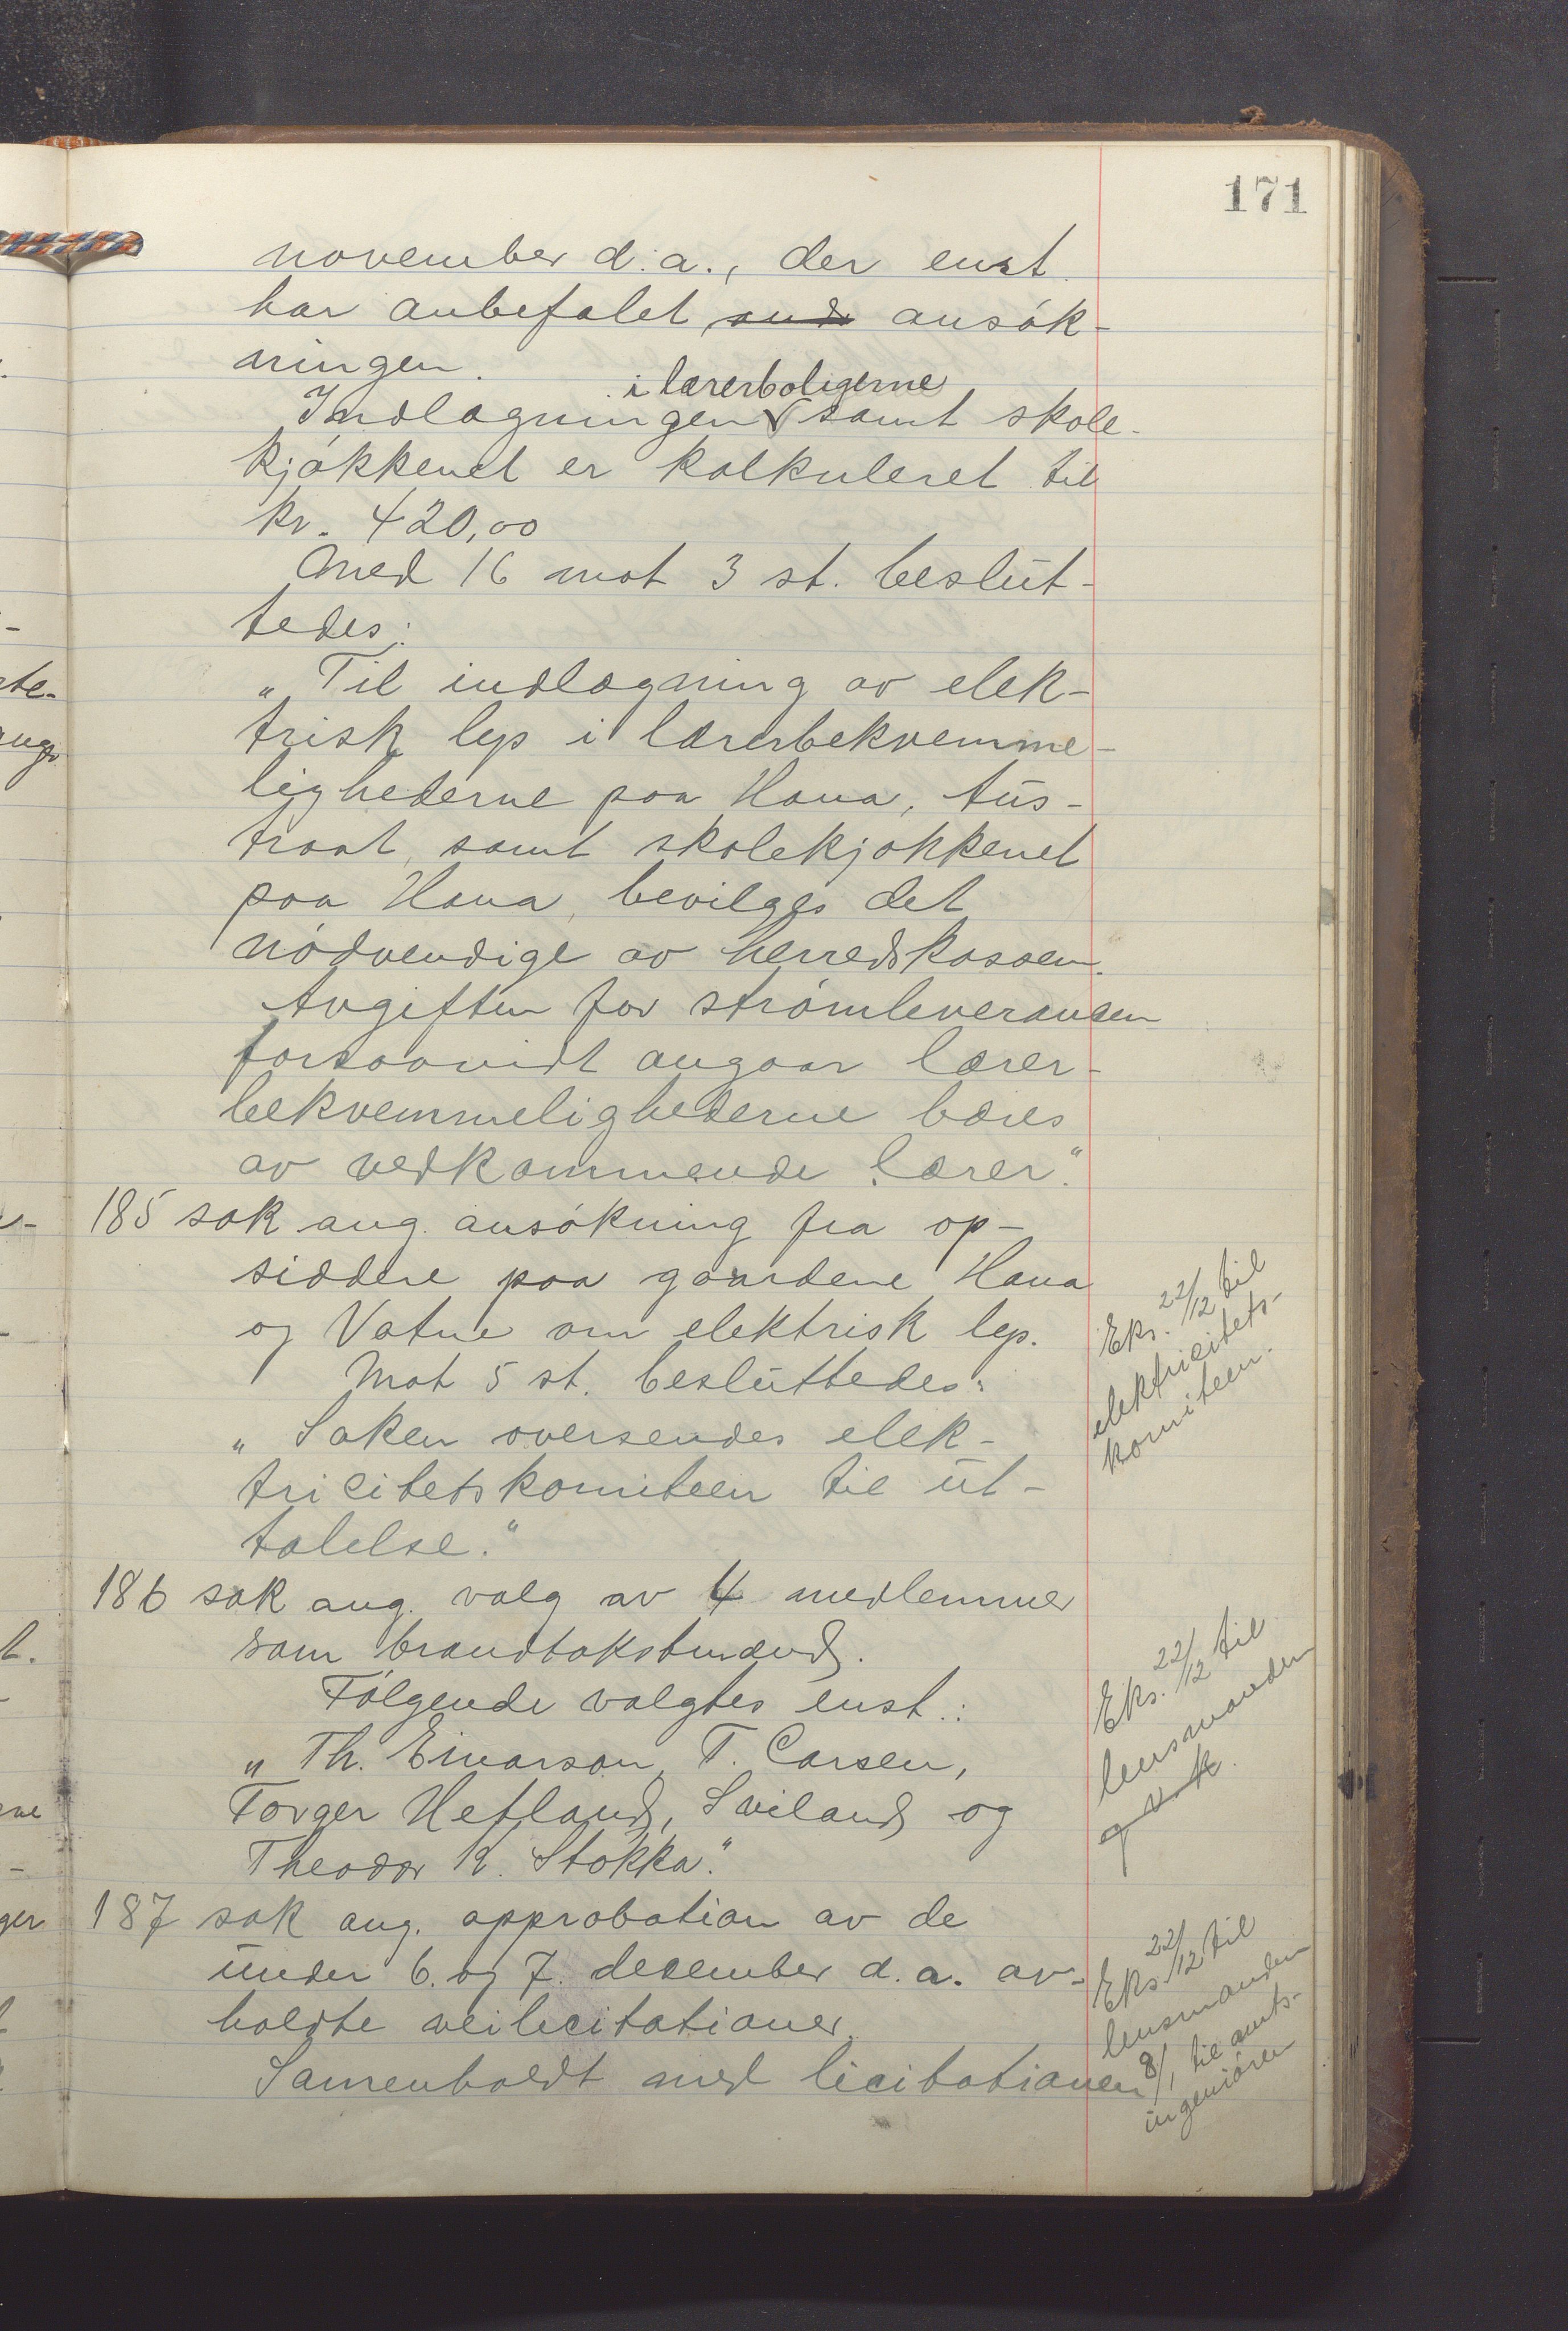 171
november d.a., der enst.
har anbefalet ansøk-
ningen.
i lærerboligerne
Indlægningen samt skole-
kjøkkenet er kalkuleret til
kr. 420,00
Med 16 mot 3 st. beslut-
tedes:
"Til indlægning av elek-
trisk lys i lærerbekvemme-
lighederne paa Hana, Aus-
traat, samt skolekjøkkenet
paa Hana, bevilges det
nødvendige av herredskassen.
Avgiften for strømleveransen
forsaavidt angaar lærer-
bekvemmelighederne bæres
av vedkommende lærer."
185 sak ang. ansøkning fra op-
siddere paa gaardene Hana
og Vatne om elektrisk lys.
Mot 5 st. besluttedes:
"Saken oversendes elek-
tricitetskomiteen til ut-
talelse."
Eks. 22/12 til
elektricitets-
komiteen.
186 sak ang. valg av 4 medlemmer
som brandtakstmænd.
Følgende valgtes enst.:
"Th. Einarson, T. Carsen,
Torger Hetland, Sviland og
Theodor K. Stokka."
Eks. 22/12 til
lensmanden
187 sak ang. approbation av de
under 6. og 7. desember d.a. av-
holdte veilicitationer.
Samenholdt med licitationen
Eks. 22/12 til
lensmanden
8/1 til amts-
ingeniøren